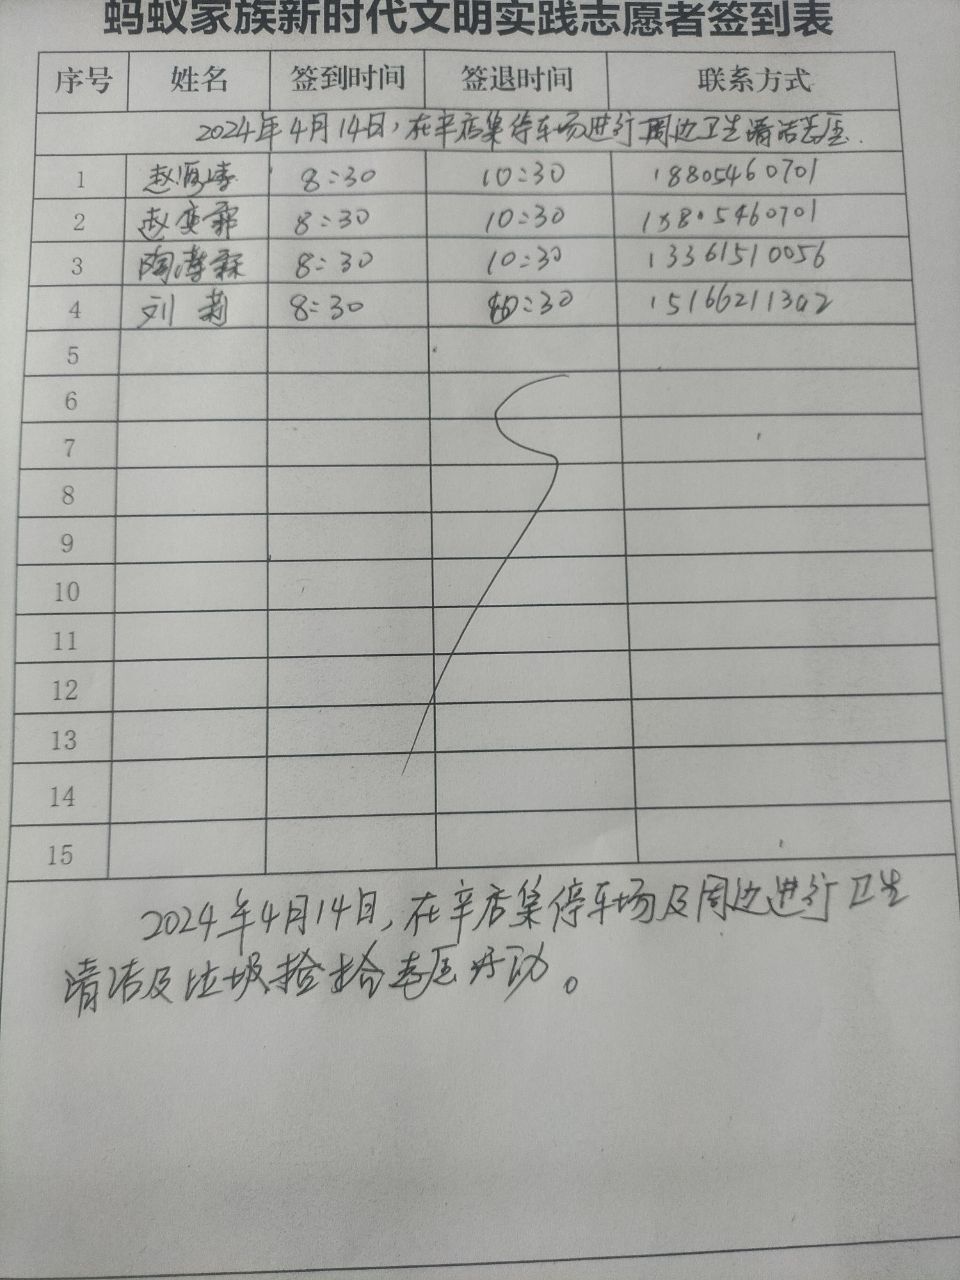 蚂蚁家族新时代文明实践志愿者签到表
序号 姓名 签到时间 签退时间 联系方式
2024年4月14日，在辛店集停车场进行周边卫生清洁志愿.
1 赵 8:30 10:30 18805460701
2 赵 8:30 10:30 18805460701
3 陶 霖 8:30 10:30 13361510056
4 刘莉 8:30 10:30 15166211302
5
6
7
8
9
10
11
12
13
14
15
2024年4月14日，在辛店集停车场及周边进行卫生
清洁及垃圾捡拾志愿活动。